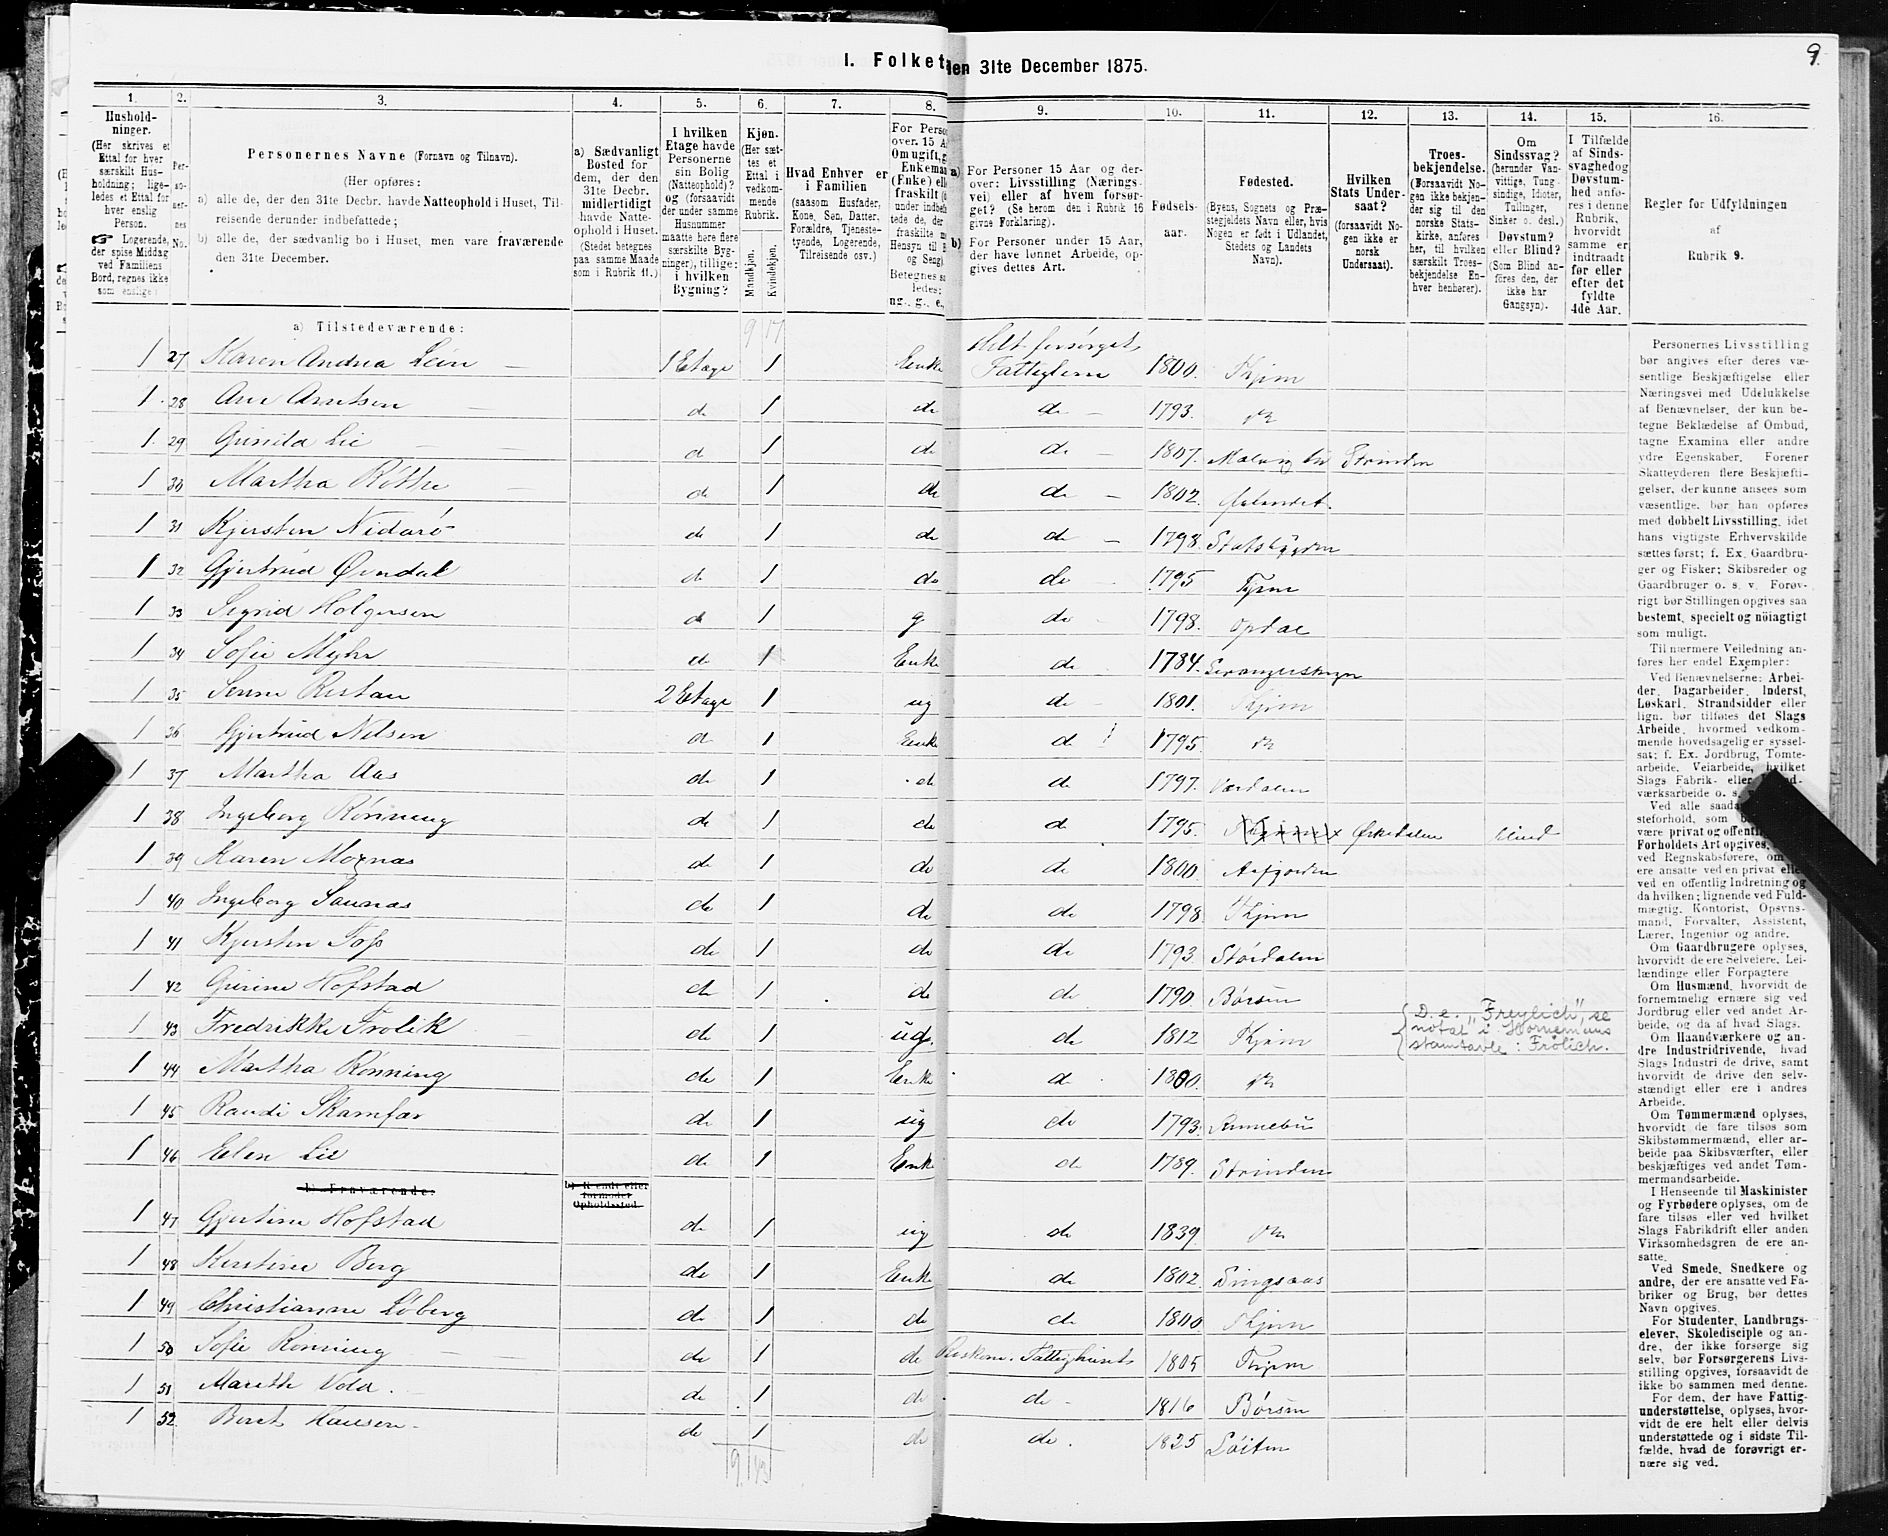 9.
I. Folket
den 31te December 1875.
1. 2. 3. 4. 5. 6. 7. 8. 9. 10. 11. 12. 13. 14. 15. 16.
Hushold-
ninger.
(Her skrives et
Ettal for hver
særskilt Hus-
holdning; lige-
ledes et Ettal for
hver enslig
Person.
☞ Logerende,
der spise Middag
ved Familiens
Bord, regnes ikke
som enslige.)
Per-
so-
ner-
nes
No.
Personernes Navne (Fornavn og Tilnavn).
(Her opføres:
a) alle de, der den 31te Decbr. havde Natteophold i Huset, Til-
reisende derunder indbefattede;
b) alle de, der sædvanlig bo i Huset, men vare fraværende
den 31te December.
a) Sædvanligt
Bosted for
dem, der den
31te Decbr.
midlertidigt
havde Natte-
ophold i Huset.
(Stedet betegnes
paa samme Maade
som i Rubrik 11.)
I hvilken
Etage havde
Personerne
sin Bolig
(Natteophold)?
og (forsaavidt
der under samme
Husnummer
maatte høre flere
særskilte Byg-
ninger), tillige:
i hvilken
Bygning?
Kjøn.
(Her sæt-
tes et
Ettal i
vedkom-
mende
Rubrik.
Mandkjøn.
Kvindekjøn.
Hvad Enhver er
i Familien
(saasom Husfader,
Kone, Søn, Datter,
Forældre, Tjeneste-
tyende, Logerende,
Tilreisende osv.)
For Perso
over. 15 A
Om ugift, g
Enkeman
(Enke) elle
fraskilt (
under indbef
tede de, der
fraskilte m
Hensyn til B
og Seng).
Betegnes sa
ledes:
ug., g., e.,
a) For Personer 15 Aar og der-
over: Livsstilling (Nærings-
vei) eller af hvem forsør-
get? (Se herom den i Rubrik 16
givne Forklaring).
b) For Personer under 15 Aar,
der have lønnet Arbeide, op-
gives dettes Art.
Fødsels-
aar.
Fødested.
(Byens, Sognets og Præ-
stegjeldets Navn eller, hvis
Nogen er født i Udlandet,
Stedets og Landets
Navn).
Hvilken
Stats Under-
saat?
(forsaavidt No-
gen ikke er
norsk
Undersaat).
Troes-
bekjendelse.
(Forsaavidt No-
gen ikke bekjen-
der sig til den
norske Stats-
kirke, anføres
her, til hvilken
særskilt Troes-
bekjendelse En-
hver henhører).
Om
Sindssvag?
(herunder Van-
vittige, Tung-
sindige, Idioter,
Tullinger,
Sinker o. desl.)
Døvstum?
eller Blind?
(Som Blind an-
føres den, der
ikke har
Gangsyn).
I Tilfælde
af Sinds-
svaghed og
Døvstum-
hed anfø-
res i denne
Rubrik,
hvorvidt
samme er
indtraadt
før eller
efter det
fyldte
4de Aar.
Regler for Udfyldningen
af
Rubrik 9.
a) Tilstedeværende:
9 17
Helt forsørget
1 27 Karen Andrea Lein 1 Etage 1 Enke Fattiglem 1800. Thjem
1 28 Ane Arntsen do 1 do do 1793. do
1 29 Gunild Lie do 1 do do 1807. Malvig Strinden
1 30 Martha Röthe do 1 do do 1802.
1 31 Kjersten Nidarö do 1 do do 1798. Statsbygden
1 32 Gjertrud Øvndal do 1 do do 1795 Thjem
1 33 Sigrid Holgersen do 1 g do 1798. Opdal
1 34 Sofie Myhr do 1 Enke do 1784.
1 35 Restan 2 Etage 1 ug do 1801. Thjem
1 36 Gjertrud Nelsen do 1 Enke do 1795. do
1 37 Martha Aas do 1 do do 1797. Værdalen
1 38 Ingeborg Rönning do 1 do do 1795. Ørkedalen blind
1 39 Karen Moxnas do 1 do do 1800 Aafjorden
1 40 Ingeborg Saunas do 1 do do 1798 Thjem
1 41 Kjersten Foss do 1 do do 1793 Stördalen
1 42 Gurine Hofstad do 1 do do 1790 Börsen
1 43 Fredrikke Frolik do 1 ug. do 1812 Thjem
{D. e. "Freylich", se
notat i Hornemans
stamtavle: Frölich.
1 44 Martha Rönning do 1 Enke do 1800. do
1 45 Randi Skamfar do 1 ug do 1793. Rennebu
1 46 Elen Lie do 1 Enke do 1789. Strinden
b) Fraværende:
b) Kjendt eller
formodet
Opholdssted.
1 47 Gjertine Hofstad do 1 ug do 1839. do
1 48 Kerstine Berg do 1 Enke do 1802. Singsaas
1 49 Christianne Löberg do 1 do do 1800. Thjem
1 50 Sofie Rönning do 1 do Fattighuset 1805 Thjem
1 51 Marithe Vold. do 1 do do 1816 Börsen
1 52 Beret Hansen do 1 do do. 1825 Löiten
9 43
Personernes Livsstilling
bør angives efter deres væ-
sentlige Beskjæftigelse eller
Næringsvei med Udelukkelse
af Benævnelser, der kun be-
tegne Beklædelse af Ombud,
tagne Examina eller andre
ydre Egenskaber. Forener
Skatteyderen flere Beskjæfti-
gelser, der kunne ansees som
væsentlige, bør han opføres
med dobbelt Livsstilling, idet
hans vigtigste Erhvervskilde
sættes først; f. Ex. Gaardbru-
ger og Fisker; Skibsreder og
Gaardbruger o. s. v. Forøv-
rigt bør Stillingen opgives saa
bestemt, specielt og nöiagtigt
som muligt.
Til nærmere Veiledning an-
føres her endel Exempler:
Ved Benævnelserne: Arbei-
der, Dagarbeider, Inderst,
Løskarl, Strandsidder eller
lign. bør tilføies det Slags
Arbeide, hvormed vedkom-
mende hovedsagelig er syssel-
sat; f. Ex. Jordbrug, Tomte-
arbeide, Veiarbeide, hvilket
Slags Fabrik- eller
værksarbeide o. s.
Ved alle saada
steforhold, som
være privat og offentli
Forholdets Art opgives,
ved Regnskabsførere, om
ere ansatte ved en privat elle
ved en offentlig Indretning og
da hvilken; lignende ved Fuld-
mægtig, Kontorist, Opsyns-
mand, Forvalter, Assistent,
Lærer, Ingeniør og andre.
Om Gaardbrugere oplyses,
hvorvidt de ere Selveiere, Lei-
lændinge eller Forpagtere
Om Husmænd, hvorvidt de
fornemmelig ernære sig ved
Jordbrug eller ved andet Ar-
beide, og da af hvad Slags.
Om Haandværkere og an-
dre Industridrivende, hvad
Slags Industri de drive, samt
hvorvidt de drive den selv-
stændigt eller ere i andres
Arbeide.
Om Tømmermænd oplyses,
hvorvidt de fare tilsøs som
Skibstømmermænd, eller ar-
beide paa Skibsværfter, eller
beskjæftiges ved andet Tøm-
mermandsarbeide.
I Henseende til Maskinister
og Fyrbødere oplyses, om de
fare tilsøs eller ved hvilket
Slags Fabrikdrift eller anden
Virksomhedsgren de ere an-
satte.
Ved Smede, Snedkere og
andre, der ere ansatte ved Fa-
briker og Brug, bør dettes
Navn opgives.
For Studenter, Landbrugs-
elever, Skoledisciple og an-
dre, der ikke forsørge sig
selv, bør Forsørgerens Livs-
stilling opgives, forsaavidt de
ikke bo sammen med denne.
For dem, der have Fattig-
understøttelse, oplyses, hvor-
vidt de ere helt eller delvis
understøttede og i sidste Til-
fælde, hvad de forøvrigt er-
nære sig ved.